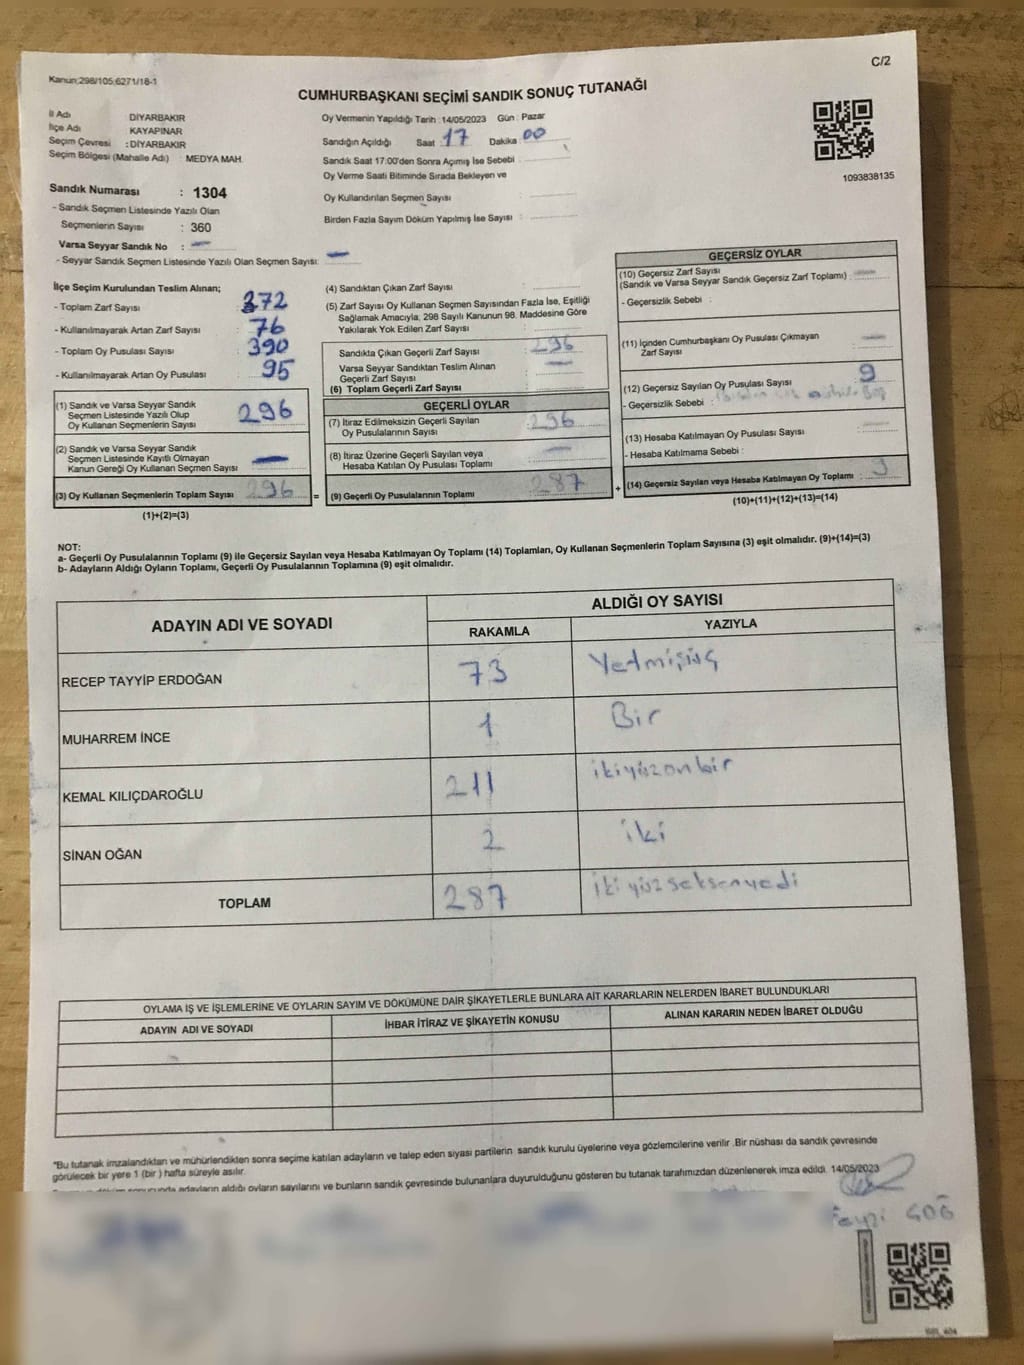 C/2
Kanun;298/105;6271/18-1
CUMHURBAŞKANI SEÇİMİ SANDIK SONUÇ TUTANAĞI
İl Adı DİYARBAKIR
İlçe Adı KAYAPINAR
Seçim Çevresi : DİYARBAKIR
Seçim Bölgesi (Mahalle Adı) : MEDYA MAH.
Sandık Numarası : 1304
- Sandık Seçmen Listesinde Yazılı Olan
Seçmenlerin Sayısı : 360
Varsa Seyyar Sandık No : —
- Seyyar Sandık Seçmen Listesinde Yazılı Olan Seçmen Sayısı: —
Oy Vermenin Yapıldığı Tarih :14/05/2023 Gün : Pazar
Sandığın Açıldığı Saat :17 Dakika 00
Sandık Saat 17:00'den Sonra Açımış İse Sebebi :
Oy Verme Saati Bitiminde Sırada Bekleyen ve
Oy Kullandırılan Seçmen Sayısı :
Birden Fazla Sayım Döküm Yapılmış İse Sayısı :
1093838135
İlçe Seçim Kurulundan Teslim Alınan;
- Toplam Zarf Sayısı : 372
- Kullanılmayarak Artan Zarf Sayısı : 76
- Toplam Oy Pusulası Sayısı : 390
- Kullanılmayarak Artan Oy Pusulası : 95
(1) Sandık ve Varsa Seyyar Sandık
Seçmen Listesinde Yazılı Olup
Oy Kullanan Seçmenlerin Sayısı : 296
(2) Sandık ve Varsa Seyyar Sandık
Seçmen Listesinde Kayıtlı Olmayan
Kanun Gereği Oy Kullanan Seçmen Sayısı : —
(3) Oy Kullanan Seçmenlerin Toplam Sayısı : 296
(1)+(2)=(3)
(4) Sandıktan Çıkan Zarf Sayısı :
(5) Zarf Sayısı Oy Kullanan Seçmen Sayısından Fazla İse, Eşitliği
Sağlamak Amacıyla, 298 Sayılı Kanunun 98. Maddesine Göre
Yakılarak Yok Edilen Zarf Sayısı :
Sandıkta Çıkan Geçerli Zarf Sayısı : 296
Varsa Seyyar Sandıktan Teslim Alınan
Geçerli Zarf Sayısı : —
(6) Toplam Geçerli Zarf Sayısı :
GEÇERLİ OYLAR
(7) İtiraz Edilmeksizin Geçerli Sayılan
Oy Pusulalarının Sayısı : 296
(8) İtiraz Üzerine Geçerli Sayılan veya
Hesaba Katılan Oy Pusulası Toplamı : —
=
(9) Geçerli Oy Pusulalarının Toplamı : 287
+
GEÇERSİZ OYLAR
(10) Geçersiz Zarf Sayısı
(Sandık ve Varsa Seyyar Sandık Geçersiz Zarf Toplamı) : —
- Geçersizlik Sebebi :
(11) İçinden Cumhurbaşkanı Oy Pusulası Çıkmayan
Zarf Sayısı : —
(12) Geçersiz Sayılan Oy Pusulası Sayısı : 9
- Geçersizlik Sebebi :
(13) Hesaba Katılmayan Oy Pusulası Sayısı : —
- Hesaba Katılmama Sebebi :
(14) Geçersiz Sayılan veya Hesaba Katılmayan Oy Toplamı : 9
(10)+(11)+(12)+(13)=(14)
NOT:
a- Geçerli Oy Pusulalarının Toplamı (9) ile Geçersiz Sayılan veya Hesaba Katılmayan Oy Toplamı (14) Toplamları, Oy Kullanan Seçmenlerin Toplam Sayısına (3) eşit olmalıdır. (9)+(14)=(3)
b- Adayların Aldığı Oyların Toplamı, Geçerli Oy Pusulalarının Toplamına (9) eşit olmalıdır.
ADAYIN ADI VE SOYADI
ALDIĞI OY SAYISI
RAKAMLA YAZIYLA
RECEP TAYYİP ERDOĞAN 73 Yetmişüç
MUHARREM İNCE 1 Bir
KEMAL KILIÇDAROĞLU 211 ikiyüzonbir
SİNAN OĞAN 2 iki
TOPLAM 287 ikiyüzseksenyedi
OYLAMA İŞ VE İŞLEMLERİNE VE OYLARIN SAYIM VE DÖKÜMÜNE DAİR ŞİKAYETLERLE BUNLARA AİT KARARLARIN NELERDEN İBARET BULUNDUKLARI
ADAYIN ADI VE SOYADI İHBAR İTİRAZ VE ŞİKAYETİN KONUSU ALINAN KARARIN NEDEN İBARET OLDUĞU
"Bu tutanak imzalandıktan ve mühürlendikten sonra seçime katılan adayların ve talep eden siyasi partilerin sandık kurulu üyelerine veya gözlemcilerine verilir .Bir nüshası da sandık çevresinde
görülecek bir yere 1 (bir ) hafta süreyle asılır.
döküm sonucunda adayların aldığı oyların sayılarını ve bunların sandık çevresinde bulunanlara duyurulduğunu gösteren bu tutanak tarafımızdan düzenlenerek imza edildi. 14/05/2023